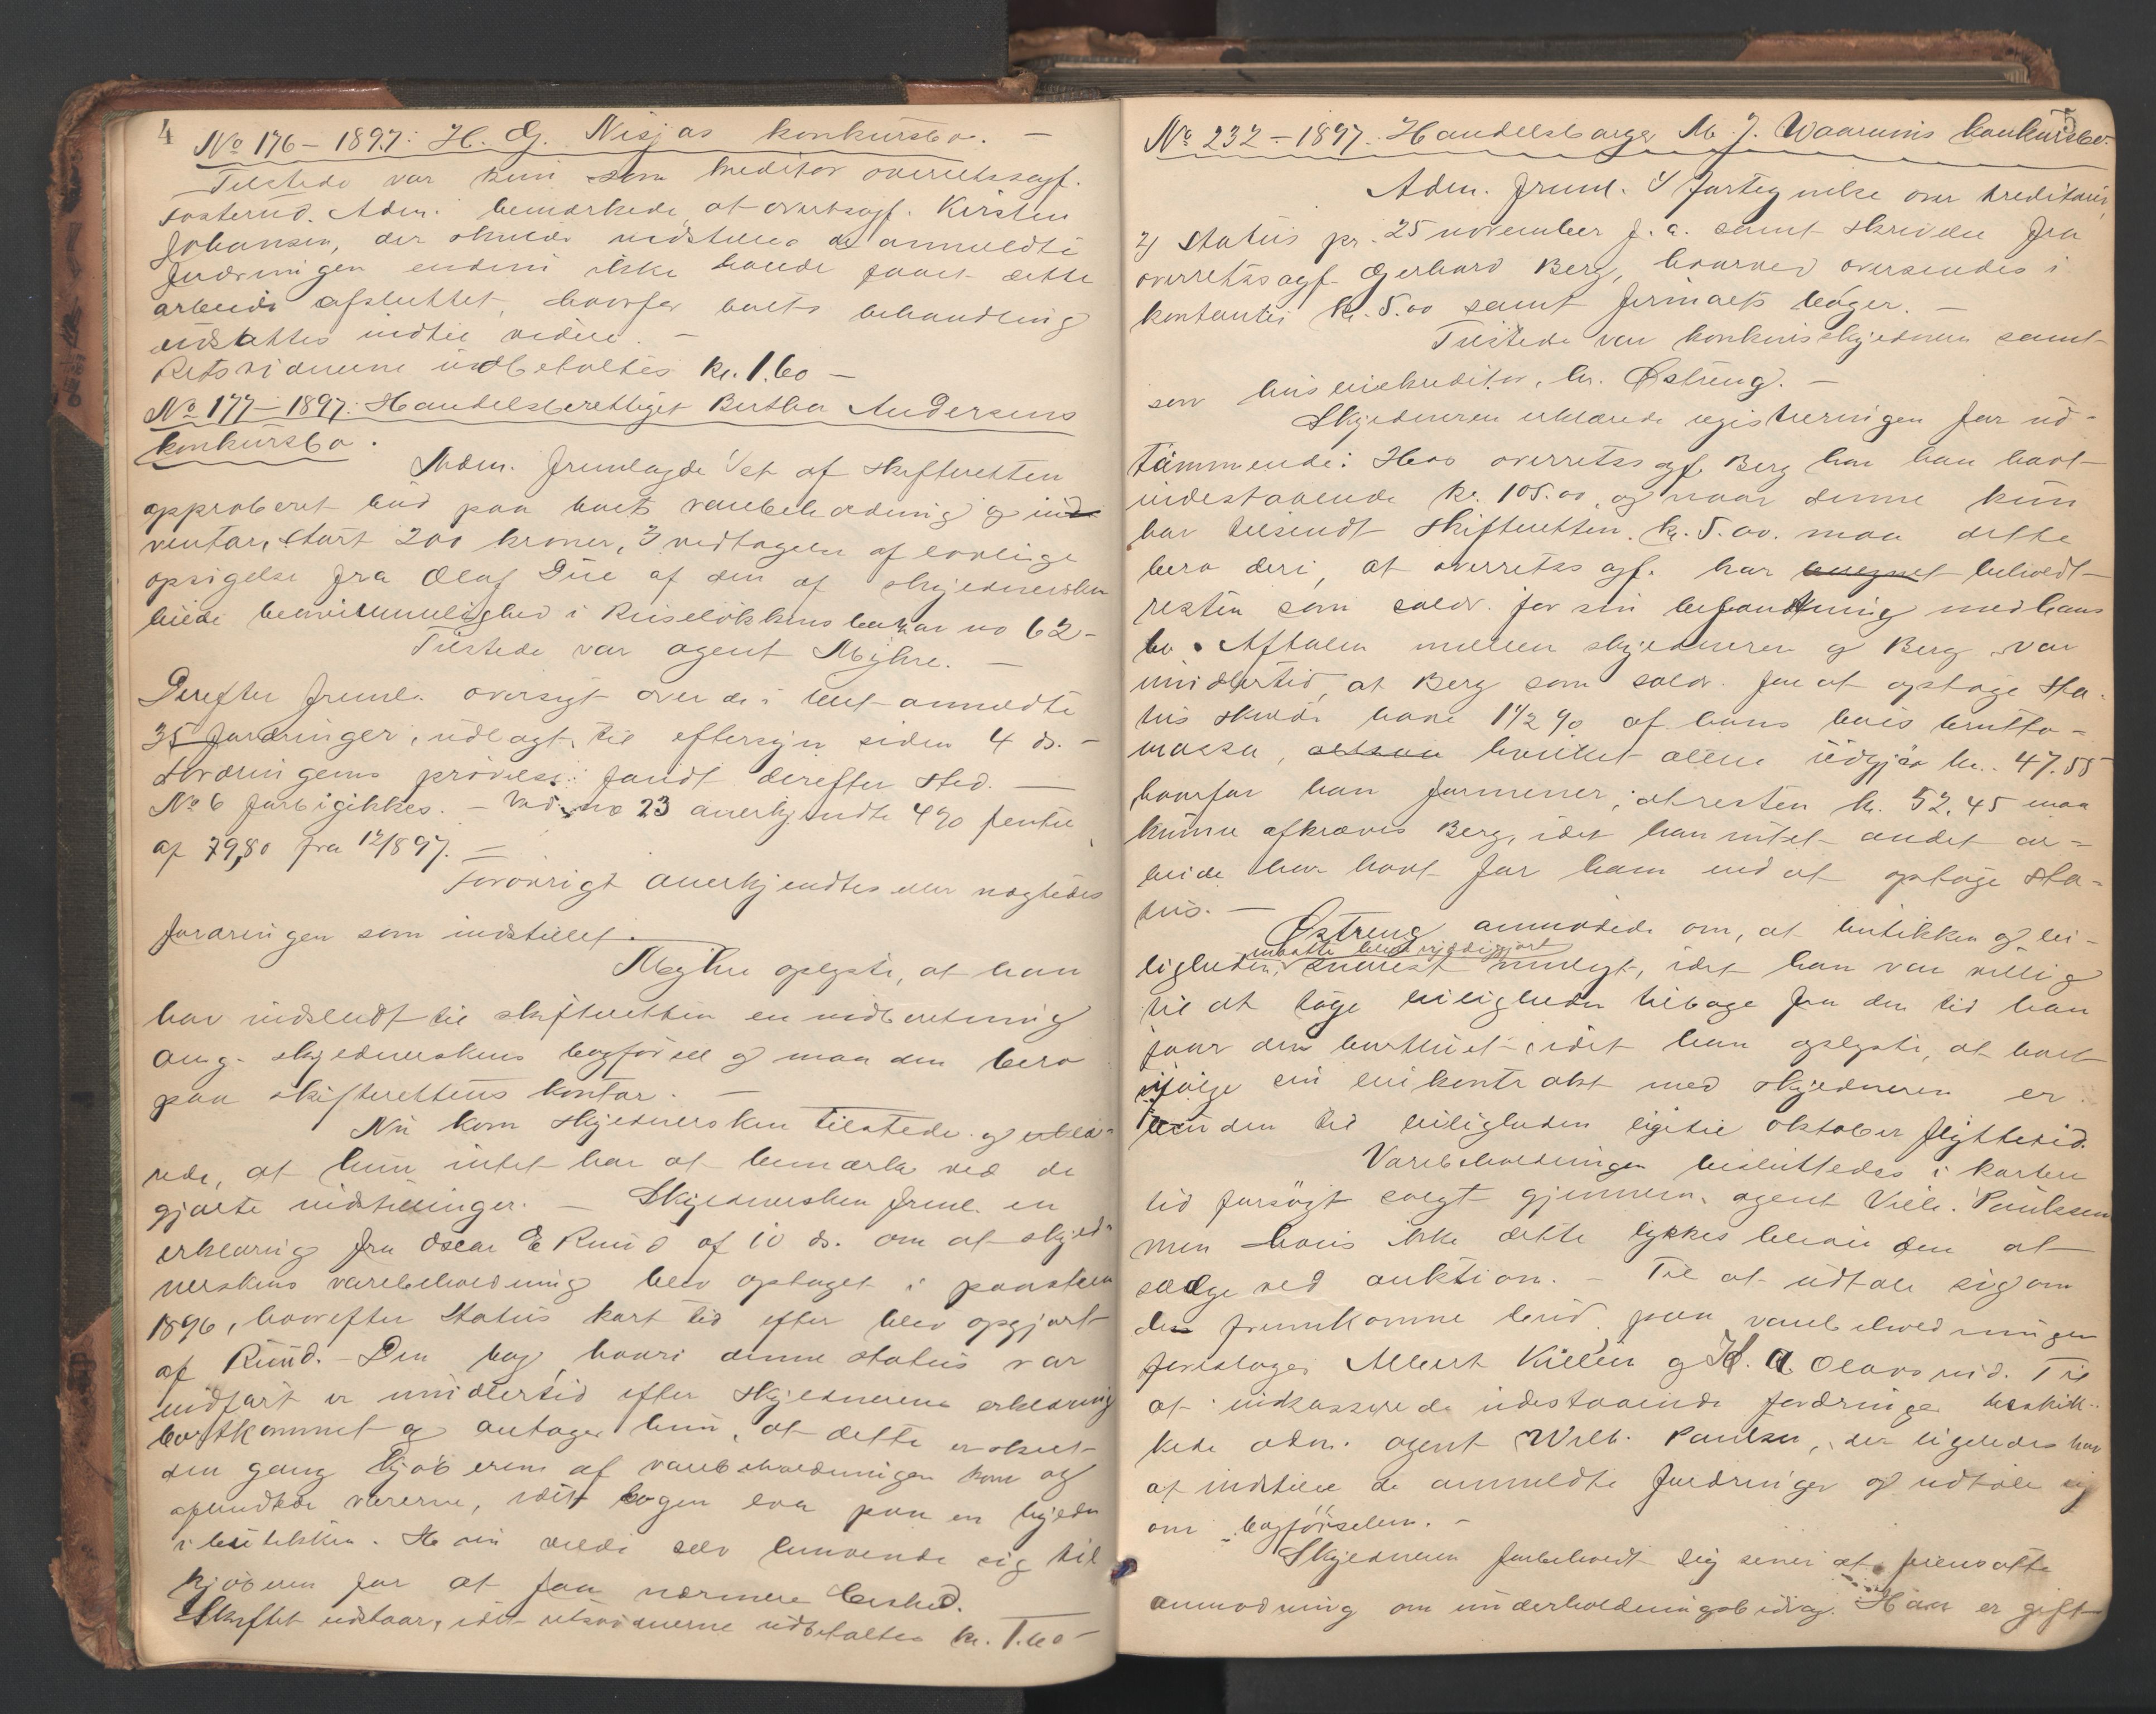 4
No 176 – 1897: H. G. Nisjas konkursbo. –
Tilstede var kun som kreditor overretssagf.
Fosterud. Adm. bemærkede at overretssagf. Kirsten
Johansen, der skulde indstille de anmeldte
fordringer endnu ikke havde faaet dette
arbeide afsluttet, hvorfor boets behandling
udsattes indtil videre. –
Retsvidnerne udbetaltes kr. 1.60 –
No 177 – 1897: Handelsberettiget Bertha Andersens
konkursbo.
Adm. fremlagde 1/ et af skifteretten
approberet bud paa boets varebeholdning og in
ventar, stort 200 kroner, 2/ vedtagelse af lovlige
opsigelse fra Olaf Due af den af skjednersken
leiede beværtningslighed i Ruseløkkens bazar no 62 –
Tilstede var agent Myhre. –
Derefter freml. oversigt over de i boet anmeldte
35 fordringer, udlagt til eftersyn siden 4 ds. –
Fordringens prøvelse fandt derefter sted. –
No 6 forbigikkes. – Ved no 23 anerkjendte 4 % rente
af 79,80 fra 12/8 97. –
Forøvrigt anerkjendtes eller nægtedes
fordringen som indstillet.
Myhre oplyste, at han
har indsendt til skifteretten en indberetning
ang. skjednerskens bogførsel og maa den bero
paa skifterettens kontor. –
Nu kom skjednersken tilstede og erklæ-
rede, at hun intet har at bemærke ved de
gjorte indstillinger. – Skjednersken freml. en
erklæring fra Oscar E Ruud af 10 ds. om at skjed-
nerskens varebeholdning blev optaget i paasken
1896, hvorefter status kort tid efter blev opgjort
af Ruud. – Den bog, hvori denne status var
indført er imidlertid efter skjednerens erklæring
bortkommet og antager hun, at dette er skeet
den gang kjøberen af varebeholdningen kom og
afhendtede varerne, idet bogen laa paa en hylde
i butikken. Hun vilde selv henvende sig til
kjøberen for at faa nærmere besked.
Skiftet udstaar, idet retsvidnerne udbetaltes kr. 1.60 –
5
No 232 – 1897. Handelsborger M. J. Waarums konkursbo.
Adm. freml. 1/ fortegnelse over kreditorer,
2/ status pr. 25 november f. a. samt skrivelse fra
overretssagf. Gerhard Berg, hvorved oversendes i
kontanter kr. 5.00 samt firmaets bøger. –
Tilstede var konkursskjedneren samt
som husleiekreditor, hr. Østreng. –
Skjedneren erklærede registreringen for ud-
tømmende: Hos overretssagf. Berg har han havt
indestaaende kr. 105.00, og naar denne kun
har tilsendt skifteretten kr. 5.00. maa dette
bero deri, at overretssagf. har beregnet beholdt
resten som salær for sin befatning med hans
bo. Aftalen mellem skjedneren og Berg var
imidlertid, at Berg som salær for at optage sta-
tus skulde have 1 1/2 % af hans bos brutto-
masse, altsaa hvilket alene udgjør kr. 47.55
hvorfor han formener, at resten kr. 52.45 maa
kunne afkræves Berg, idet han intet andet ar-
beide har havt for ham end at optage sta-
tus. –
Østreng anmodede om, at butikken og lei-
maatte blive ryddiggjort
ligheden, snarest muligt, idet han var villig
til at tage leiligheden tilbage fra den tid han
faar den bortleiet, idet han oplyste, at boet
ifølge sin leiekontrakt med skjedneren er
bunden til leiligheden ligetil oktober flyttetid.
Varebeholdningen besluttedes i kortere
tid forsøgt solgt gjennem agent Vilh. Paulsen
men hvis ikke dette lykkes bliver den at
sælge ved auktion. – Til at udtale sig om
de fremkomne bud paa varebeholdningen
foreslages Albert Killen og H. A. Olavsrud. Til
at inkassere de udestaaende fordringer beskik-
kede adm. agent Wilh. Paulsen, der ligeledes har
at indstille de anmeldte fordringer og udtale sig
om bogførselen. –
Skjedneren forbeholdt sig senere at fremsætte
anmodning om underholdningsbidrag. Han er gift